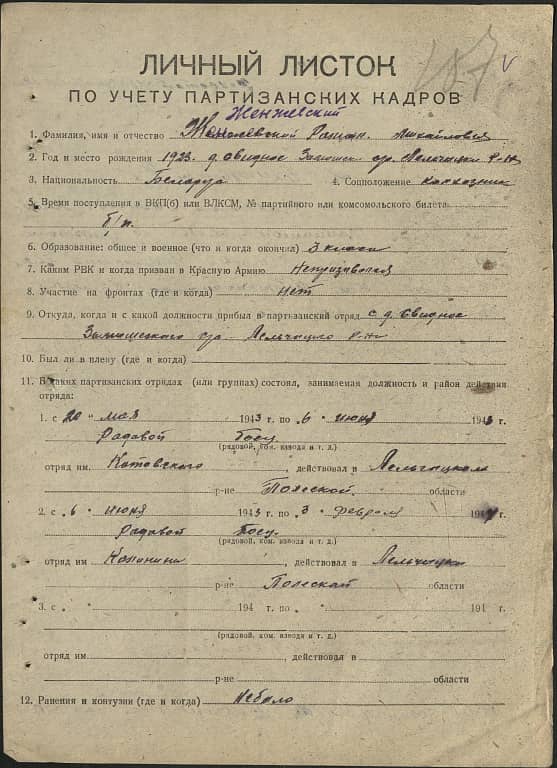 187 v
ЛИЧНЫЙ ЛИСТОК
ПО УЧЕТУ ПАРТИЗАНСКИХ КАДРОВ
Женжевский
1. Фамилия, имя и отчество Роман Михайлович
2. Год и место рождения 1923. д. Свидное с/со. Лельчицки Р-Н
3. Национальность Беларус 4. Соцположение колхозник
5. Время поступления в ВКП(б) или ВЛКСМ, № партийного или комсомольского билета
б/п.
6. Образование: общее и военное (что и когда окончил) 3 класса
7. Каким РВК и когда призван в Красную Армию Непризывался
8. Участие на фронтах (где и когда) Нет
9. Откуда, когда и с какой должности прибыл в партизанский отряд с д. Свидное
Лельчицко Р-Н
10. Был ли в плену (где и когда)
11. В каких партизанских отрядах (или группах) состоял, занимаемая должность и район действия
отряда:
1. с 20 " мая 1943 г. по 6 " июня 1943 г.
Радавой Боец
(рядовой, ком. взвода и т. д.)
отряд им. Котовского, действовал в Лельчицком
р-не Полеской области
2. с 6 " июня 1943 г. по 3 " февраля 1944 г.
Радавой Боец
(рядовой, ком. взвода и т. д.)
отряд им. Калинина, действовал в Лельчицки
р-не Полеской области
3. с " 194 г. по " 194 г.
(рядовой, ком. взвода и т. д.)
отряд им. , действовал в
р-не области
12. Ранения и контузии (где и когда) Небыло